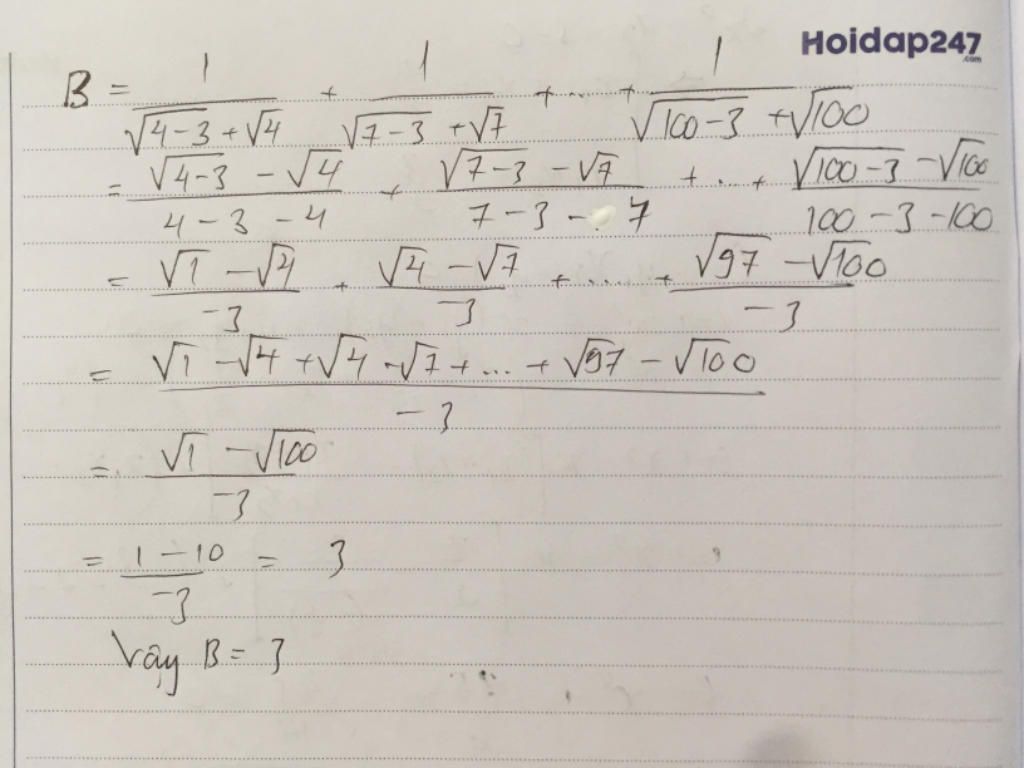 Hoidap247
.com
B = 1/(√(4-3) + √4) + 1/(√(7-3) + √7) + ... + 1/(√(100-3) + √100)
= (√(4-3) - √4)/(4-3-4) + (√(7-3) - √7)/(7-3-7) + ... + (√(100-3) - √100)/(100-3-100)
= (√1 - √4)/(-3) + (√4 - √7)/(-3) + .... + (√97 - √100)/(-3)
= (√1 - √4 + √4 - √7 + ... + √97 - √100)/(-3)
= (√1 - √100)/(-3)
= (1 - 10)/(-3) = 3
Vậy B = 3